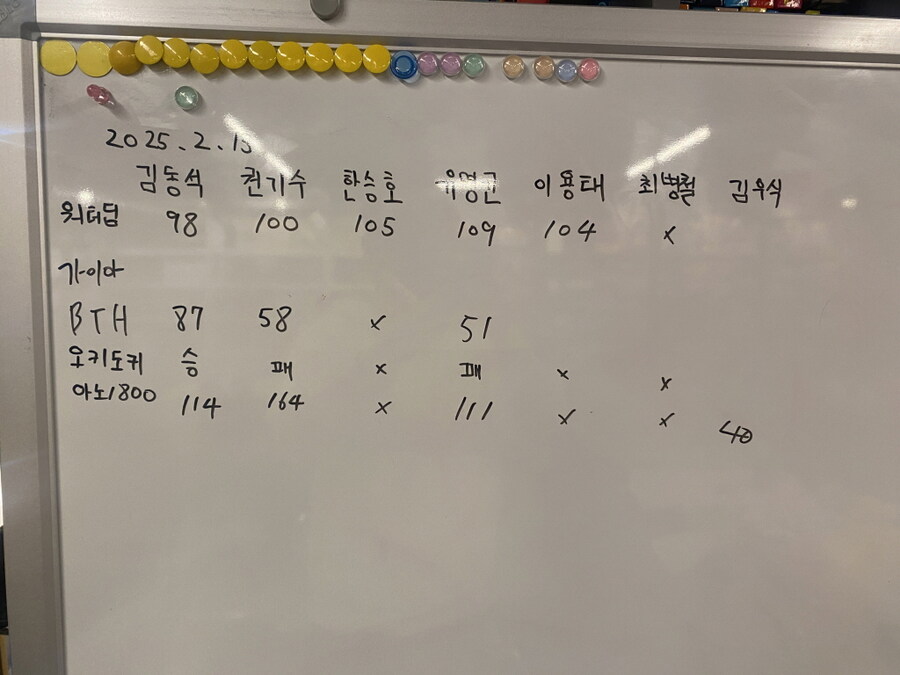 2025.2.15
김동석 권기수 한승호 유영근 이용태 최병철 김우식
워터딥 98 100 105 109 104 x
가이아
BTH 87 58 x 51
오키도키 승 패 x 패 x x
아노1800 114 164 x 111 x x 40